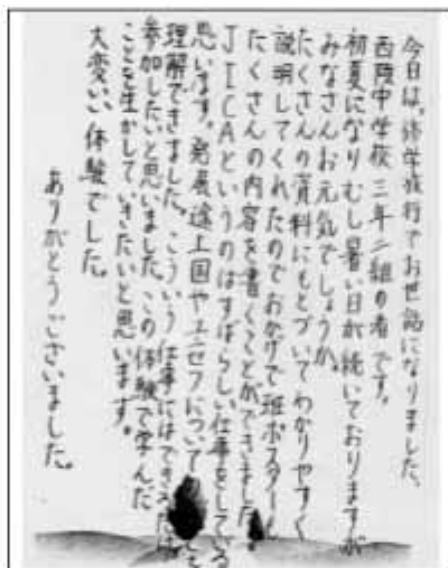 今日は。修学旅行でお世話になりました、
西陵中学校三年二組の者です。
初夏になりむし暑い日が続いておりますが
みなさんお元気でしょうか。
たくさんの資料にもとづいてわかりやすく
説明してくれたのでおかげで班ポスターに
たくさんの内容を書くことができました。
JICAというのはすばらしい仕事をしている
思います。発展途上国やユニセフについて
理解できました。こういう仕事にはできれば
参加したいと思いました。この体験で学んだ
ことを生かしていきたいと思います。
大変いい体験でした。
ありがとうございました。